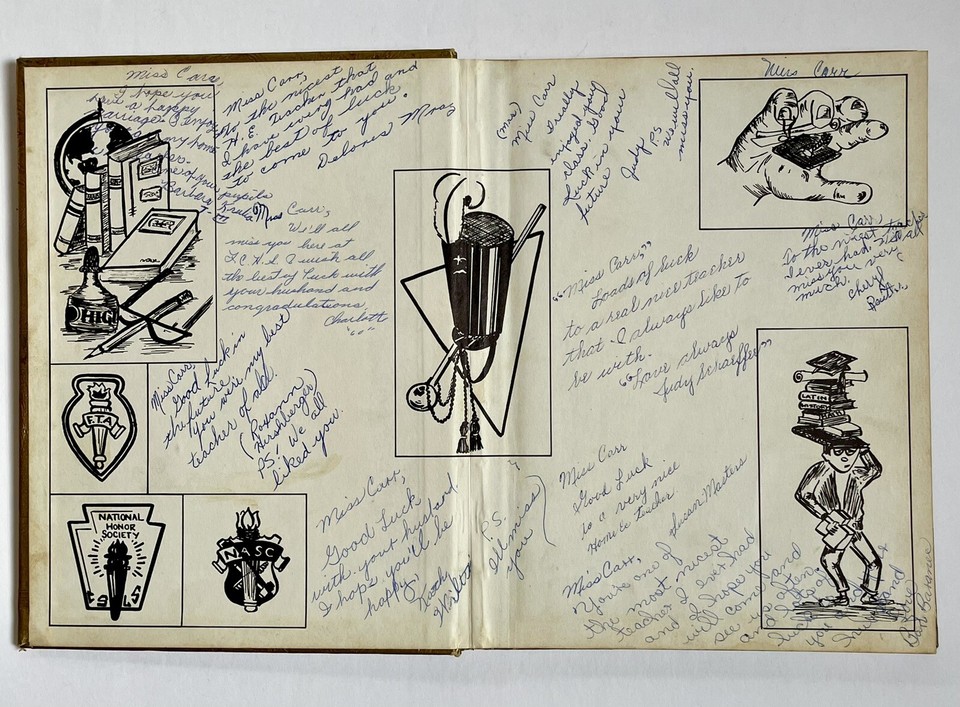 Miss Carr,
I hope you
have a happy
marriage & enjoy
my home
Barbara
Miss Carr,
To the nicest
H. E. Teacher that
I have ever had and
the best of luck
to come to you.
Delores
Miss Carr,
We'll all
miss you here at
I wish all
the best of luck with
your husband and
congratulations
Charlotte
"60"
HIGH
Miss Carr,
Good Luck in
the future.
You were my best
teacher of all.
(Roxann
Hirshberger)
PS. We all
liked you.
F.T.A.
NATIONAL
HONOR
SOCIETY
C S L S
NASC
Miss Carr,
Good Luck
with your husband.
I hope you'll be
happy.
Kathy
P.S.
I'll miss
you
(Mrs)
Miss Carr
I really
enjoyed your
class. Good
Luck in your
future
Judy
P.S.
We will all
miss you.
Miss Carr
"Miss Carr,"
Loads of luck
to a real nice teacher
that I always like to
be with.
"Have always
Judy Schaeffer"
Miss Carr
To the nicest teacher
I ever had. I'll
miss you very
much.
Cheryl
LATIN
HISTORY
Miss Carr
Good Luck
to a very nice
Home Ec teacher
Susan Masters
Miss Carr,
You're one of
the most nicest
teacher I ever had
and I hope you
will come and
see us often
and
luck to
you
Barb